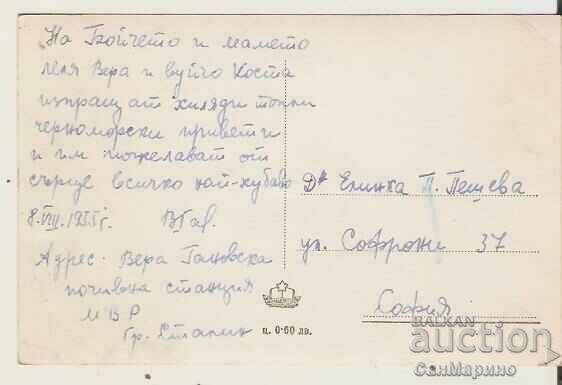 На Бойчето и мамето
леля Вера и вуйчо Коста
изпращат хиляди топли
черноморски привети
и им пожелават от
сърце всичко най-хубаво
8.VIII.195 г. ВГав.
Адрес. Вера Гановска
почивна станция
МВР
гр. Сталин
Д-р Елинка П. Пешева
ул. Софрони 37
София
ц. 0·60 лв.
BALKAN
auction
СанМарино